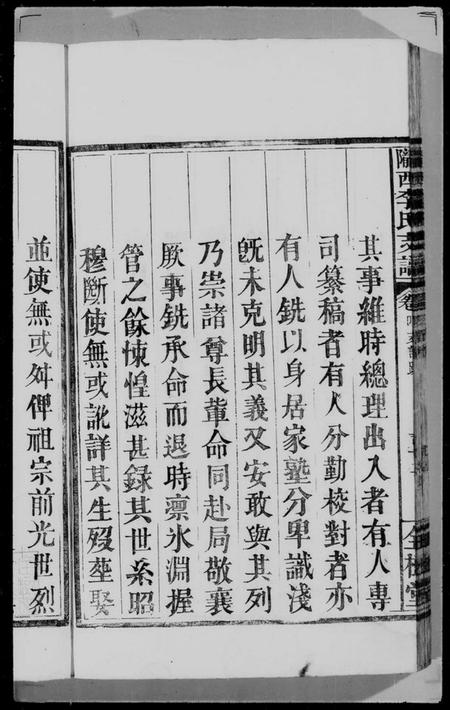 隴西李氏支譜
卷
其事維時總理出入者有人專
司纂稿者有人分勤校對者亦
有人銑以身居家塾分卑識淺
旣未克明其義又安敢與其列
乃崇諸尊長輩命同赴局敬襄
厥事銑承命而退時凛氷淵握
管之餘悚惶滋甚録其世系昭
穆斷使無或訛詳其生歿塟娶
並使無或舛俾祖宗前光世烈